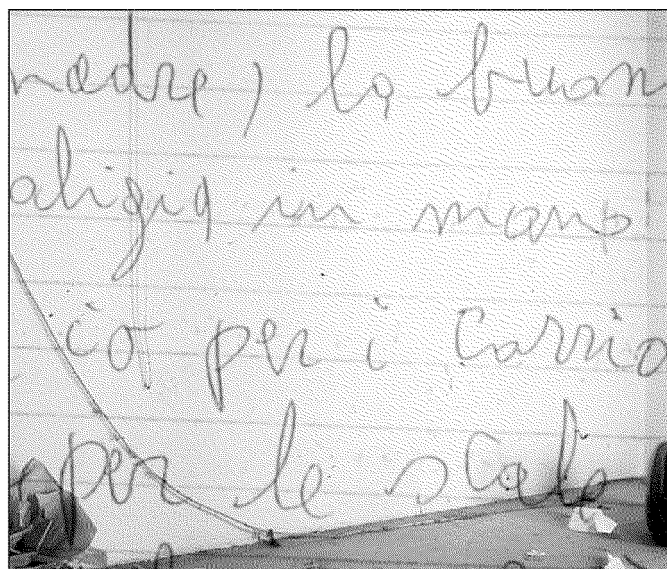 madre, la buon
aligia in mano
io per i Corrio
per le scale